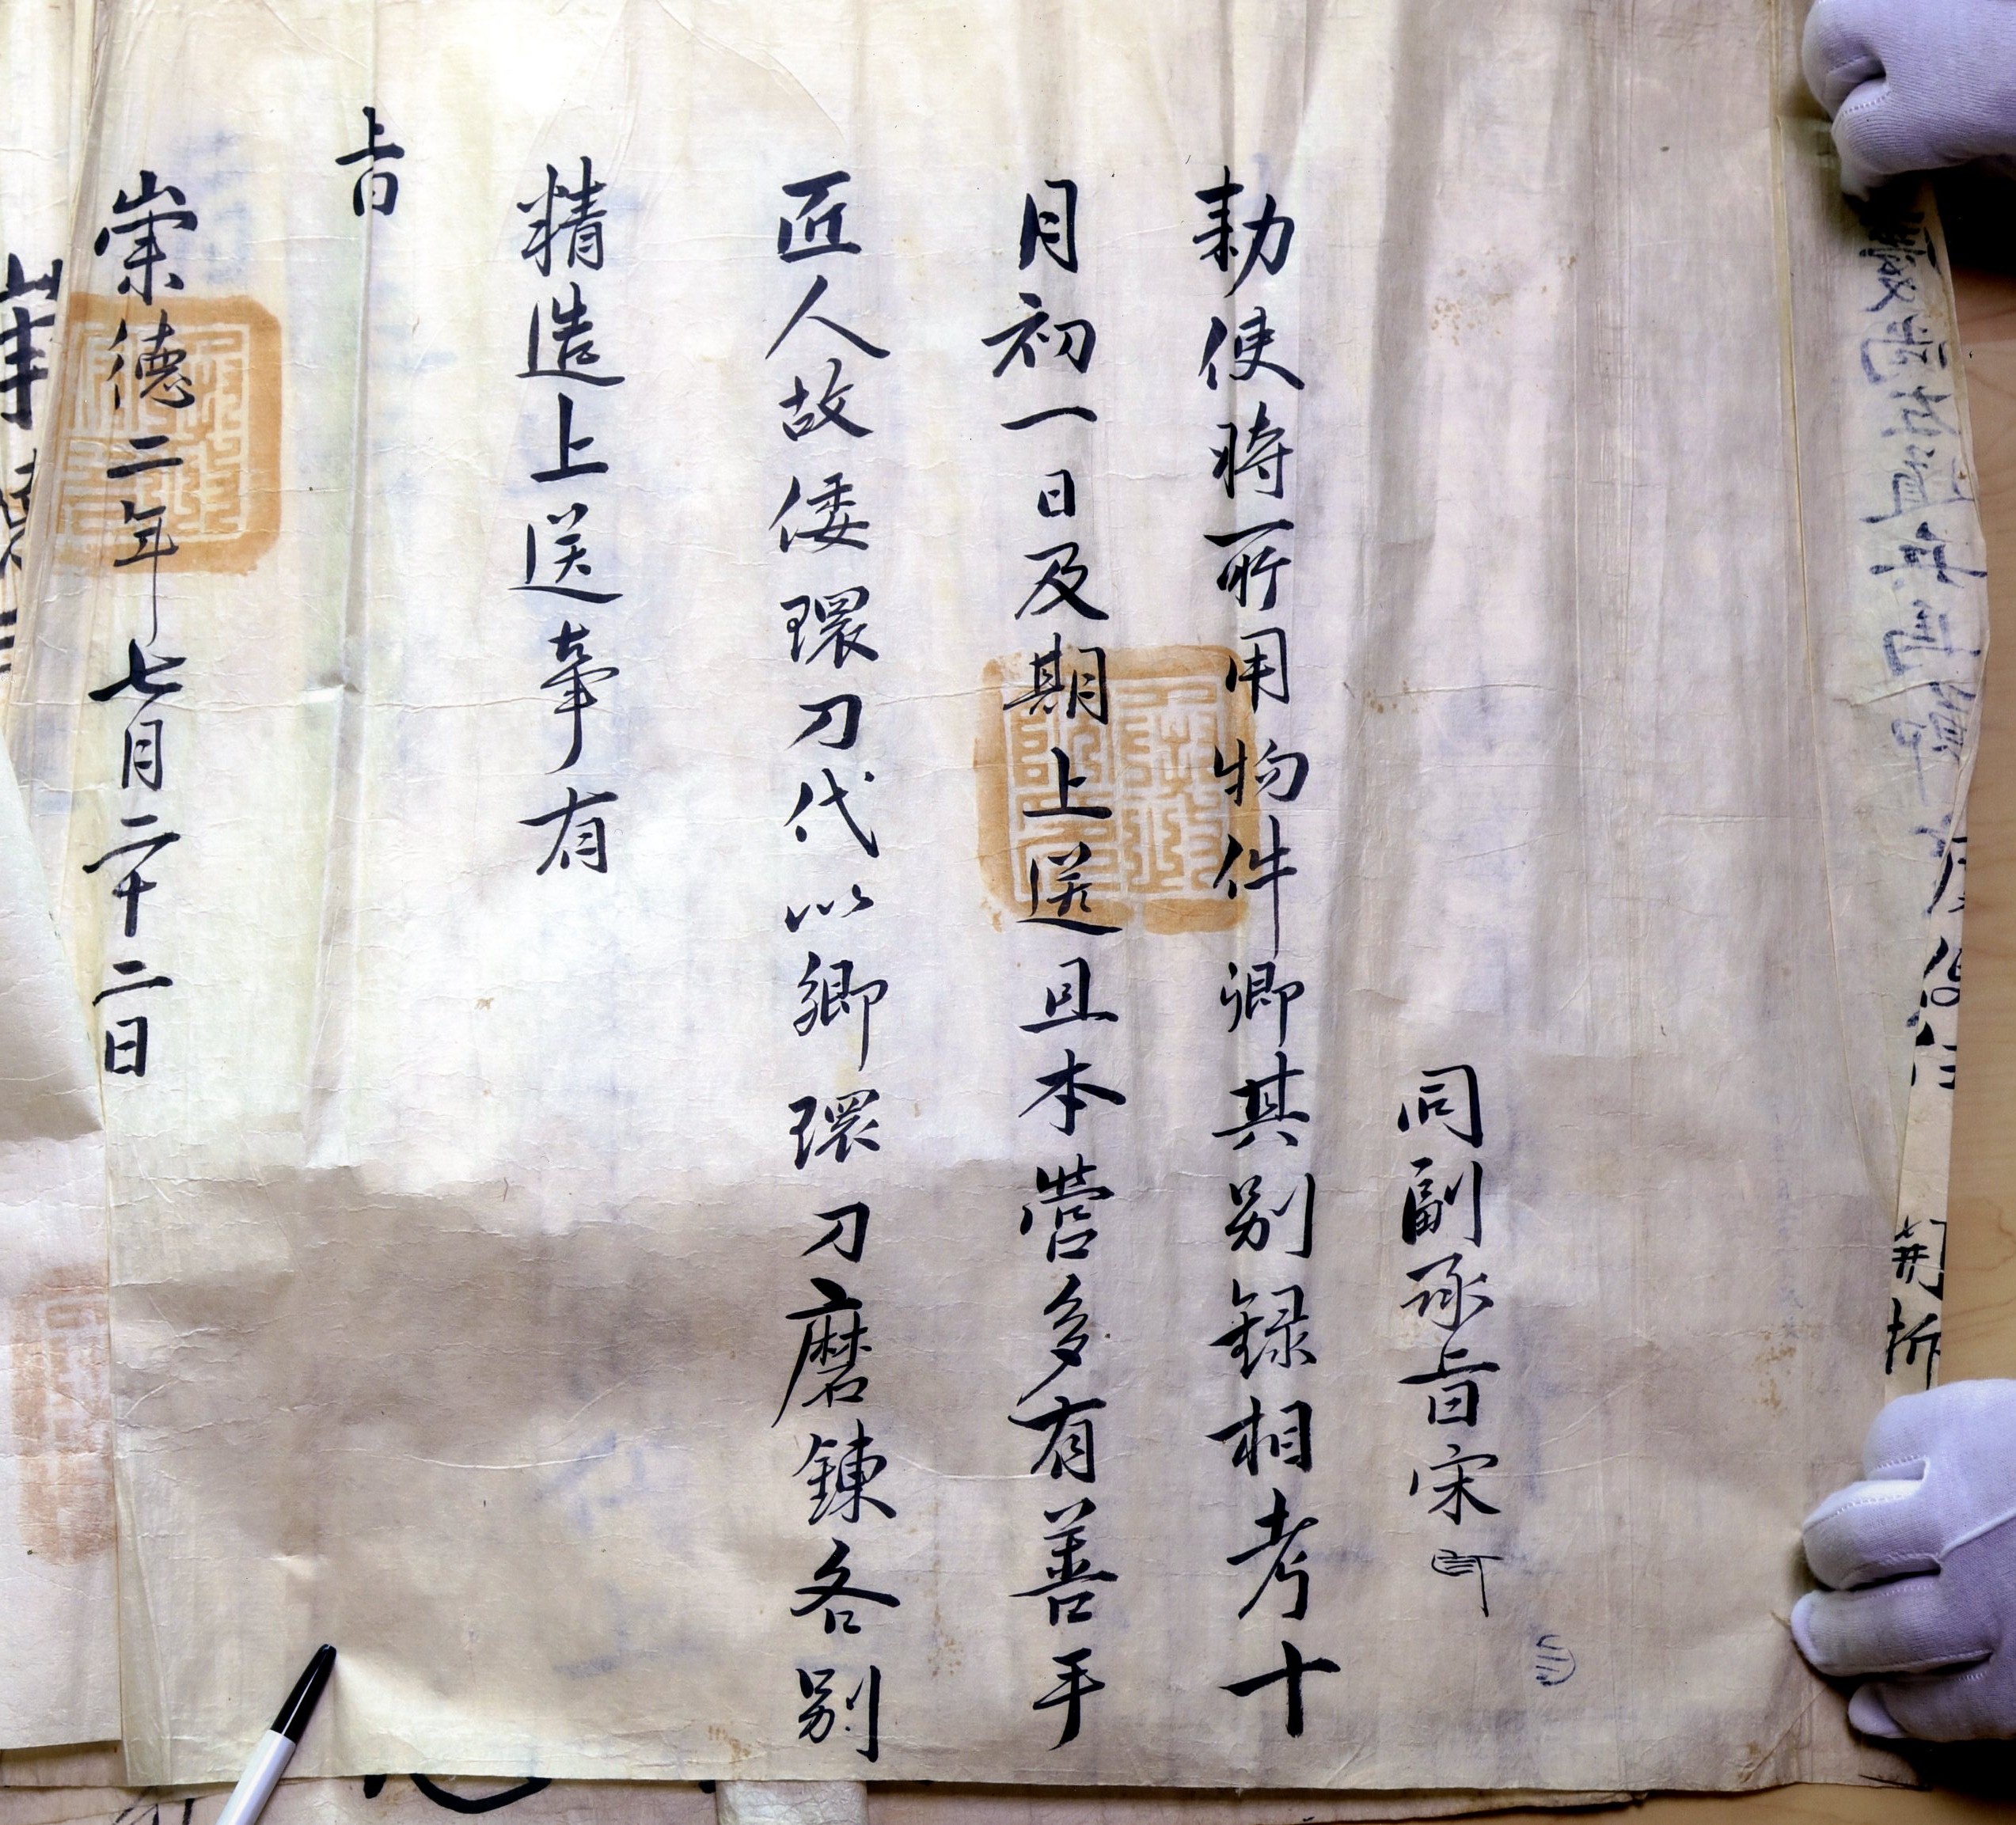 開折
同副承旨宋
勅使時所用物件卿其別録相考十
月初一日及期上送且本營多有善手
匠人故倭環刀代以鄉環刀磨鍊各別
精造上送事有
旨
崇德二年七月二十二日